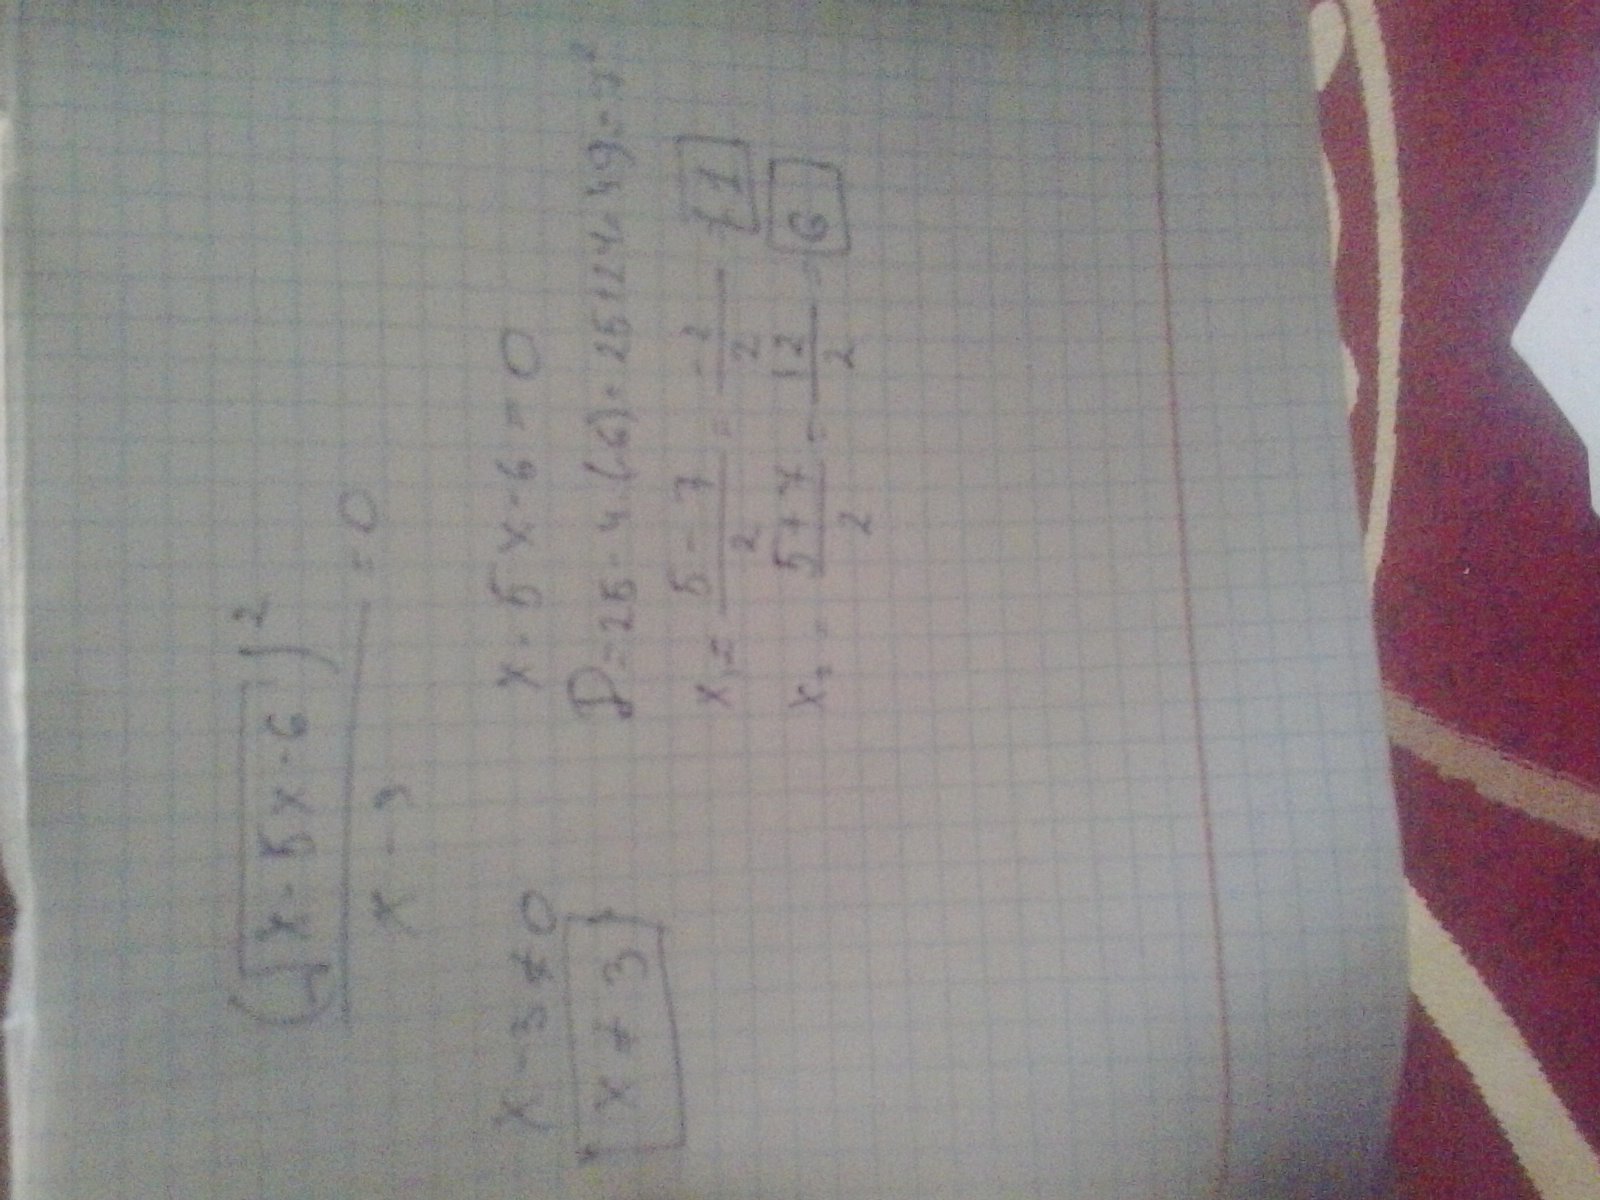 (√x-5x-6)² / x-3 = 0
x-3≠0
x≠3
x-5x-6=0
D=25-4(-6)=25+24=49=7²
x₁= 5-7/2 = -2/2 = -1
x₂= 5+7/2 = 12/2 = 6